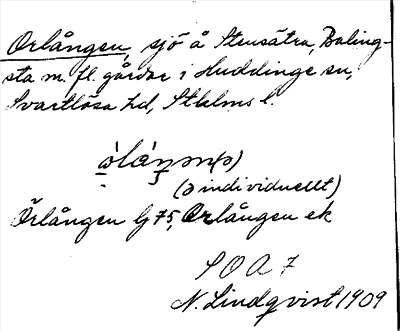 Orlången, sjö å Stensätra, Baling-
sta m. fl. gårdar i Huddinge sn,
Svartlösa hd, Sthlms l.
(ə individuellt)
Örlången Gj 75, Orlången ek
SOA 7
N. Lindqvist 1909